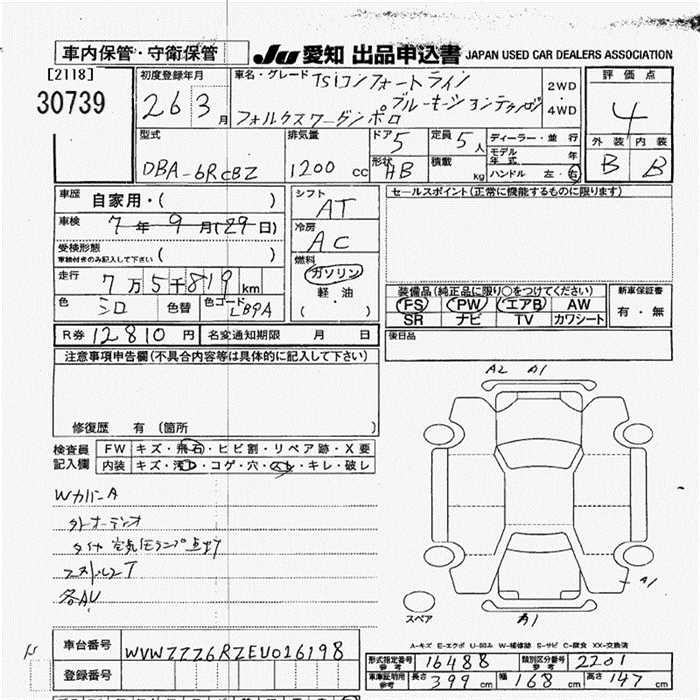 車内保管・守衛保管
JU 愛知 出品申込書 JAPAN USED CAR DEALERS ASSOCIATION
[2118]
30739
初度登録年月 26 3月
車名・グレード TSiコンフォートライン
ブルーモーションテクノロジ
フォルクスワーゲン ポロ
2WD・4WD
評価点 4
外装 内装
B B
型式 DBA-6RCBZ
排気量 1200 cc
ドア 5
形状 HB
定員 5人
積載 kg
ディーラー・並行
モデル年式 年
ハンドル 左・右
車歴 自家用・( )
車検 7年9月(29日)
受検形態
車検付きのみ記入して下さい ( )
走行 7万5千819km
色 シロ 色替 色コード LB9A
シフト AT
冷房 AC
燃料 ガソリン
軽・油
( )
セールスポイント(正常に機能するものに限ります)
装備品(純正品に限り○をつけてください)
FS PW エアB AW
SR ナビ TV カワシート
新車保証書
有・無
R券 12810円 名変通知期限 月 日
後日品
注意事項申告欄(不具合内容等は具体的に記入して下さい)
修復歴 有 (箇所 )
検査員記入欄
FW キズ・飛石・ヒビ割・リペア跡・X要
内装 キズ・汚レ・コゲ・穴・スレ・キレ・破レ
WカバーA
外オーディオ
タイヤ空気圧ランプ点灯
各AU
A2 A1
A1
A1
スペア
A-キズ E-エクボ U-凹み W-補修跡 S-サビ C-腐食 XX-交換済
車台番号 WVWZZZ6RZEU016198
登録番号
形式指定番号 参考 16488 類別区分番号 参考 2201
車庫証明用 参考 長さ 399cm 幅 168cm 高さ 147cm